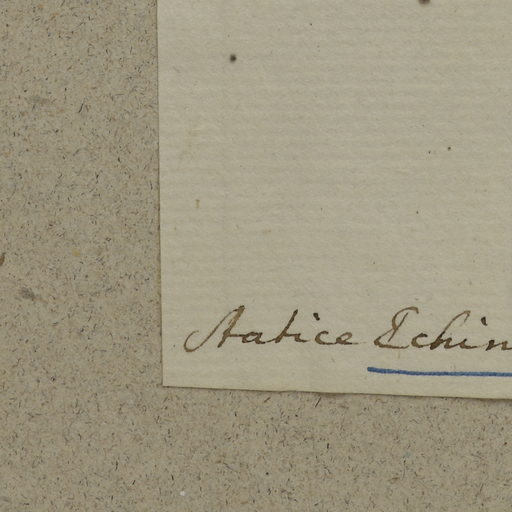 Statice Echin